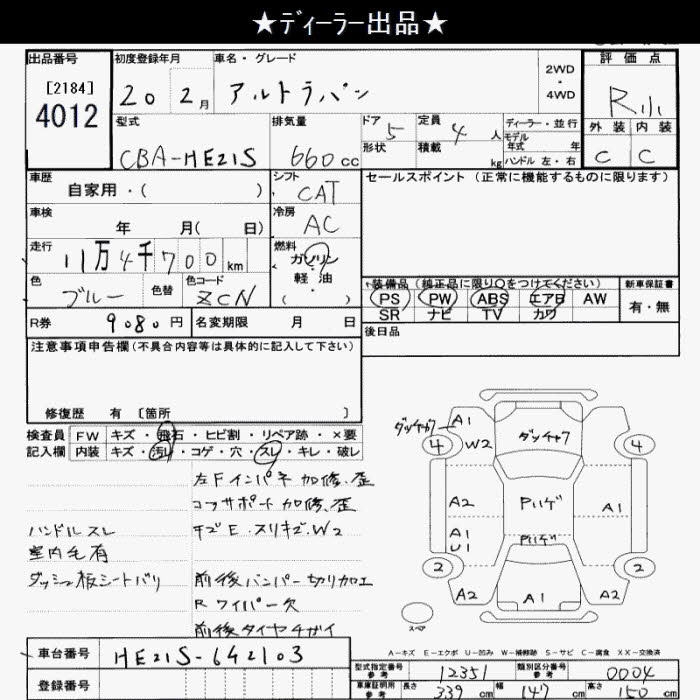 ★ディーラー出品★
出品番号
[2184]
4012
初度登録年月
20 2月
車名・グレード
アルトラパン
2WD
・
4WD
評価点
R
外装 内装
C C
型式
CBA-HE21S
排気量
660cc
ドア 5
形状
定員 4人
積載 kg
ディーラー・並行
モデル
年式 年
ハンドル 左・右
車歴
自家用・( )
シフト
CAT
セールスポイント(正常に機能するものに限ります)
車検
年 月( 日)
冷房
AC
走行
11万4千700km
燃料
ガソリン
・
軽油
( )
色
ブルー
色替
色コード
ZCN
装備品(純正品に限り○をつけてください)
PS PW ABS エアB AW
SR ナビ TV カワ
新車保証書
有・無
R券 9080円
名変期限 月 日
後日品
注意事項申告欄(不具合内容等は具体的に記入して下さい)
修復歴 有 [箇所 ]
検査員
記入欄
FW キズ・飛石・ヒビ割・リペア跡・×要
内装 キズ・汚レ・コゲ・穴・スレ・キレ・破レ
左Fインパネ加修、歪
コアサポート加修、歪
ハンドルスレ
室内毛有
ダッシュ板シートバリ
キズE・スリキズ・W2
前後バンパー切り加工
Rワイパー欠
前後タイヤチガイ
ダッチャク
A1
W2
4
ダッチャク
4
A2
A1
U1
A1
2
2
A2
A1
A2
スペア
A-キズ E-エクボ U-凹み W-補修跡 S-サビ C-腐食 XX-交換済
車台番号 HE21S-642103
登録番号
型式指定番号
参考
12351
類別区分番号
参考
0004
車庫証明用
参考
長さ 339cm
幅 147cm
高さ 150cm